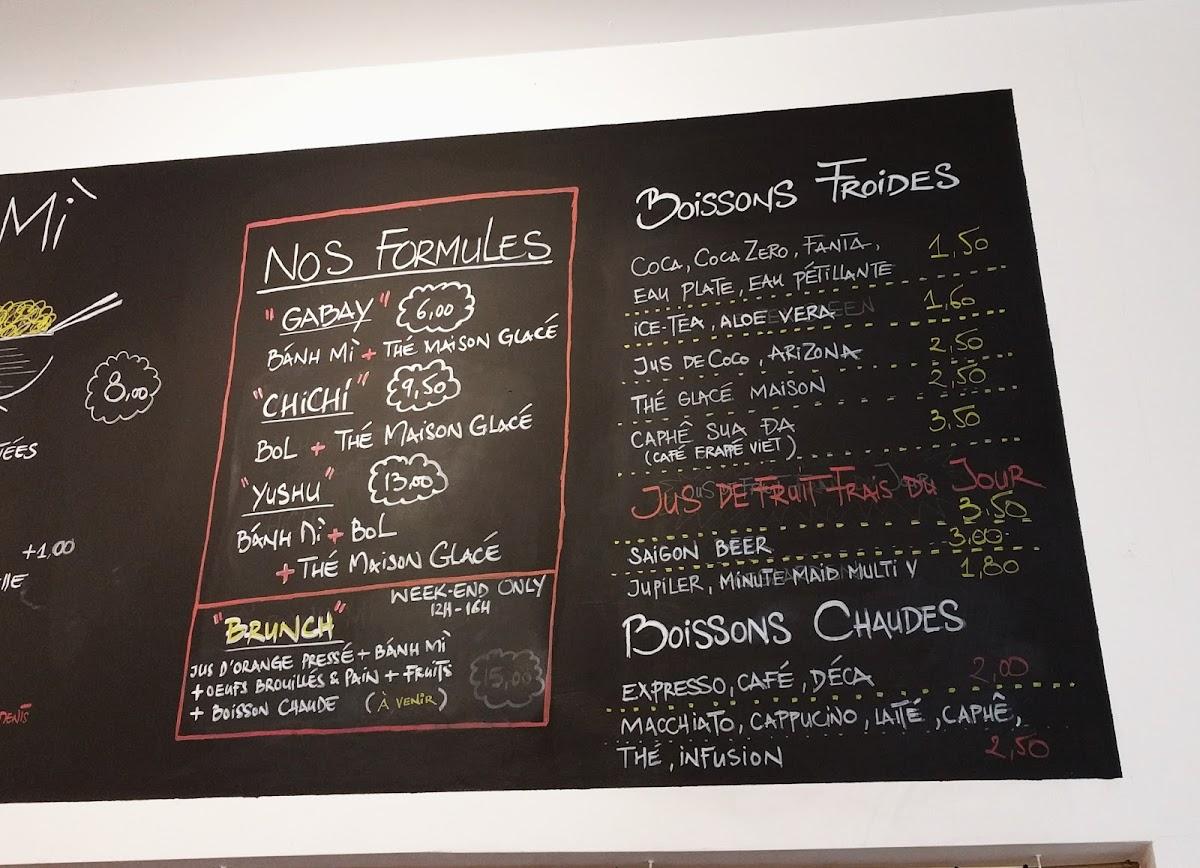 Mì
8,00
+1,00
NOS FORMULES
"GABAY" 6,00
BÁNH MÌ + THÉ MAISON GLACÉ
"CHICHI" 9,50
BOL + THÉ MAISON GLACÉ
"YUSHU" 13,00
BÁNH MÌ + BOL
+ THÉ MAISON GLACÉ
WEEK-END ONLY
12H-16H
"BRUNCH"
JUS D'ORANGE PRESSÉ + BÁNH MÌ
+ OEUFS BROUILLÉS & PAIN + FRUITS
+ BOISSON CHAUDE (À VENIR) 15,00
BOISSONS FROIDES
COCA, COCA ZERO, FANTA, 1,50
EAU PLATE, EAU PÉTILLANTE
ICE-TEA, ALOE VERA 1,60
JUS DE COCO, ARIZONA 2,50
THÉ GLACÉ MAISON 2,50
CAPHÊ SUA ĐA 3,50
(CAFÉ FRAPÉ VIET)
JUS DE FRUIT FRAIS DU JOUR
3,50
SAIGON BEER 3,00
JUPILER, MINUTE MAID MULTI V 1,80
BOISSONS CHAUDES
EXPRESSO, CAFÉ, DÉCA 2,00
MACCHIATO, CAPPUCINO, LATTÉ, CAPHÊ,
THÉ, INFUSION 2,50